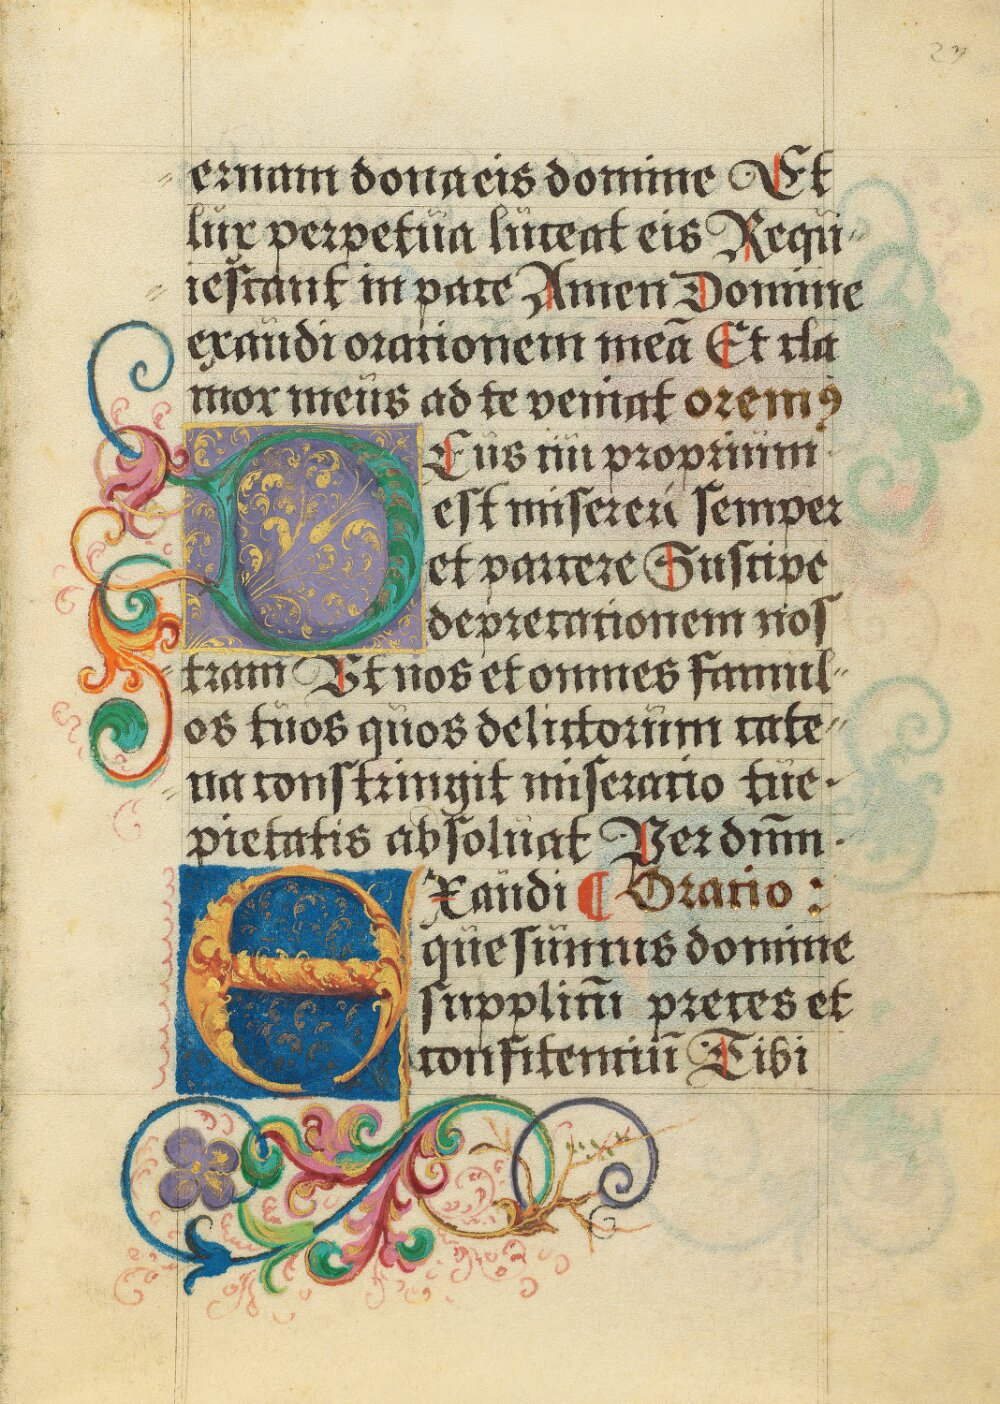 23
ernam dona eis domine Et
lux perpetüa lüceat eis Reqüi-
iescant in pace Amen Domine
exaüdi orationem meā Et cla
mor meüs ad te veniat oremꝰ
Deüs cui propriüm
est misereri semper
et parcere Suscipe
deprecationem nos
tram Vt nos et omnes famül-
os tüos qüos delictorüm cate-
na constringit miseratio tüe-
pietatis absolüat Per dnm̄
Exaüdi ¶ Oratio :
qüesümus domine
supplicū preces et
confitentiū Tibi